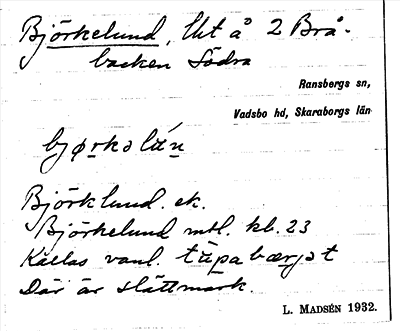 Björkelund, Ut å 2 Brå-
backen Södra
Ransbergs sn,
Vadsbo hd, Skaraborgs län
bjørkəlún
Björklund. ek.
Björkelund mtl. kb. 23
Kallas vanl. tùpabærjət
Där är slåttmark.
L. MADSÉN 1932.